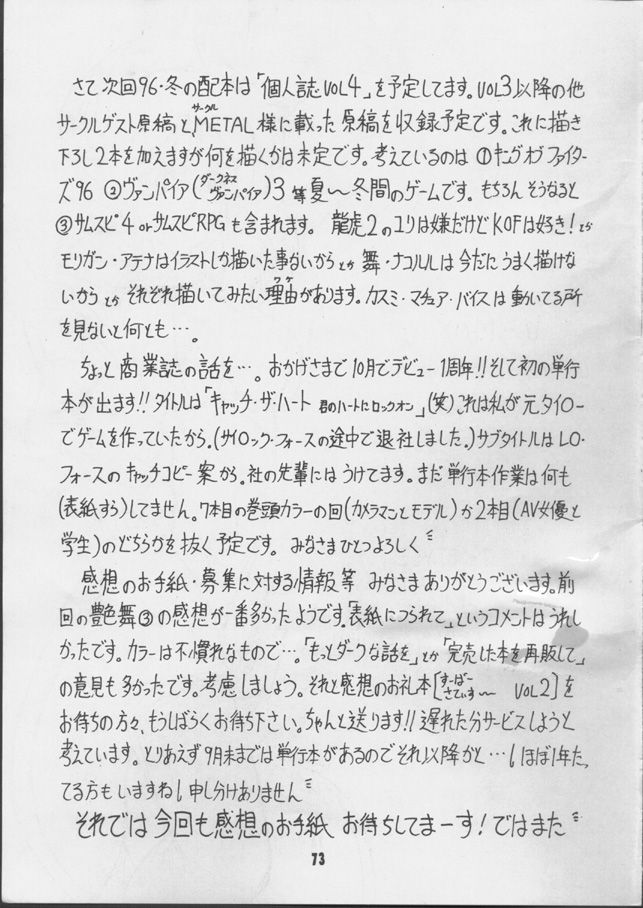 さて次回96・冬の配本は「個人誌VOL4」を予定してます。VOL3以降の他
サークル
サークルゲスト原稿と、METAL様に載った原稿を収録予定です。これに描き
下ろし2本を加えますが何を描くかは未定です。考えているのは①キングオブファイター
ズ96 ②ヴァンパイア(ダークネス ヴァンパイア)3等夏〜冬間のゲームです。もちろんそうなると
③サムスピ4 or サムスピRPGも含まれます。 龍虎2のユリは嫌だけどKOFは好き!とか
モリガン・アテナはイラストしか描いた事ないからとか 舞・ナコルルは今だにうまく描けな
いからとか それぞれ描いてみたい理由(ワケ)があります。カスミ・マチュア・バイスは動いてる所
を見ないと何とも…。
ちょっと商業誌の話を…。おかげさまで10月でデビュー1周年!!そして初の単行
本が出ます!!タイトルは「キャッチ・ザ・ハート 君のハートにロックオン」(笑)これは私が元タイロー
でゲームを作っていたから。(サイロック・フォースの途中で退社しました。)サブタイトルはLO・
フォースのキャッチコピー案から。社の先輩にはうけてます。まだ単行本作業は何も
(表紙すら)してません。7本目の巻頭カラーの回(カメラマンとモデル)か2本目(AV女優と
学生)のどちらかを抜く予定です。 みなさまひとつよろしく
感想のお手紙・募集に対する情報等 みなさまありがとうございます。前
回の艶色舞③の感想が一番多かったようです。「表紙につられて」というコメントはうれし
かったです。カラーは不慣れなもので…。「もっとダークな話を」とか「完売した本を再販して」
の意見も多かったです。考慮しましょう。それと感想のお礼本[すーぱー さてぃすふぁ〜 VOL2]を
お待ちの方々、もうしばらくお待ち下さい。ちゃんと送ります!!遅れた分サービスしようと
考えています。とりあえず9月末までは単行本があるのでそれ以降かと…しほぼ1年た、
てる方もいますね、申し分けありません
それでは今回も感想のお手紙 お待ちしてまーす!ではまた
73